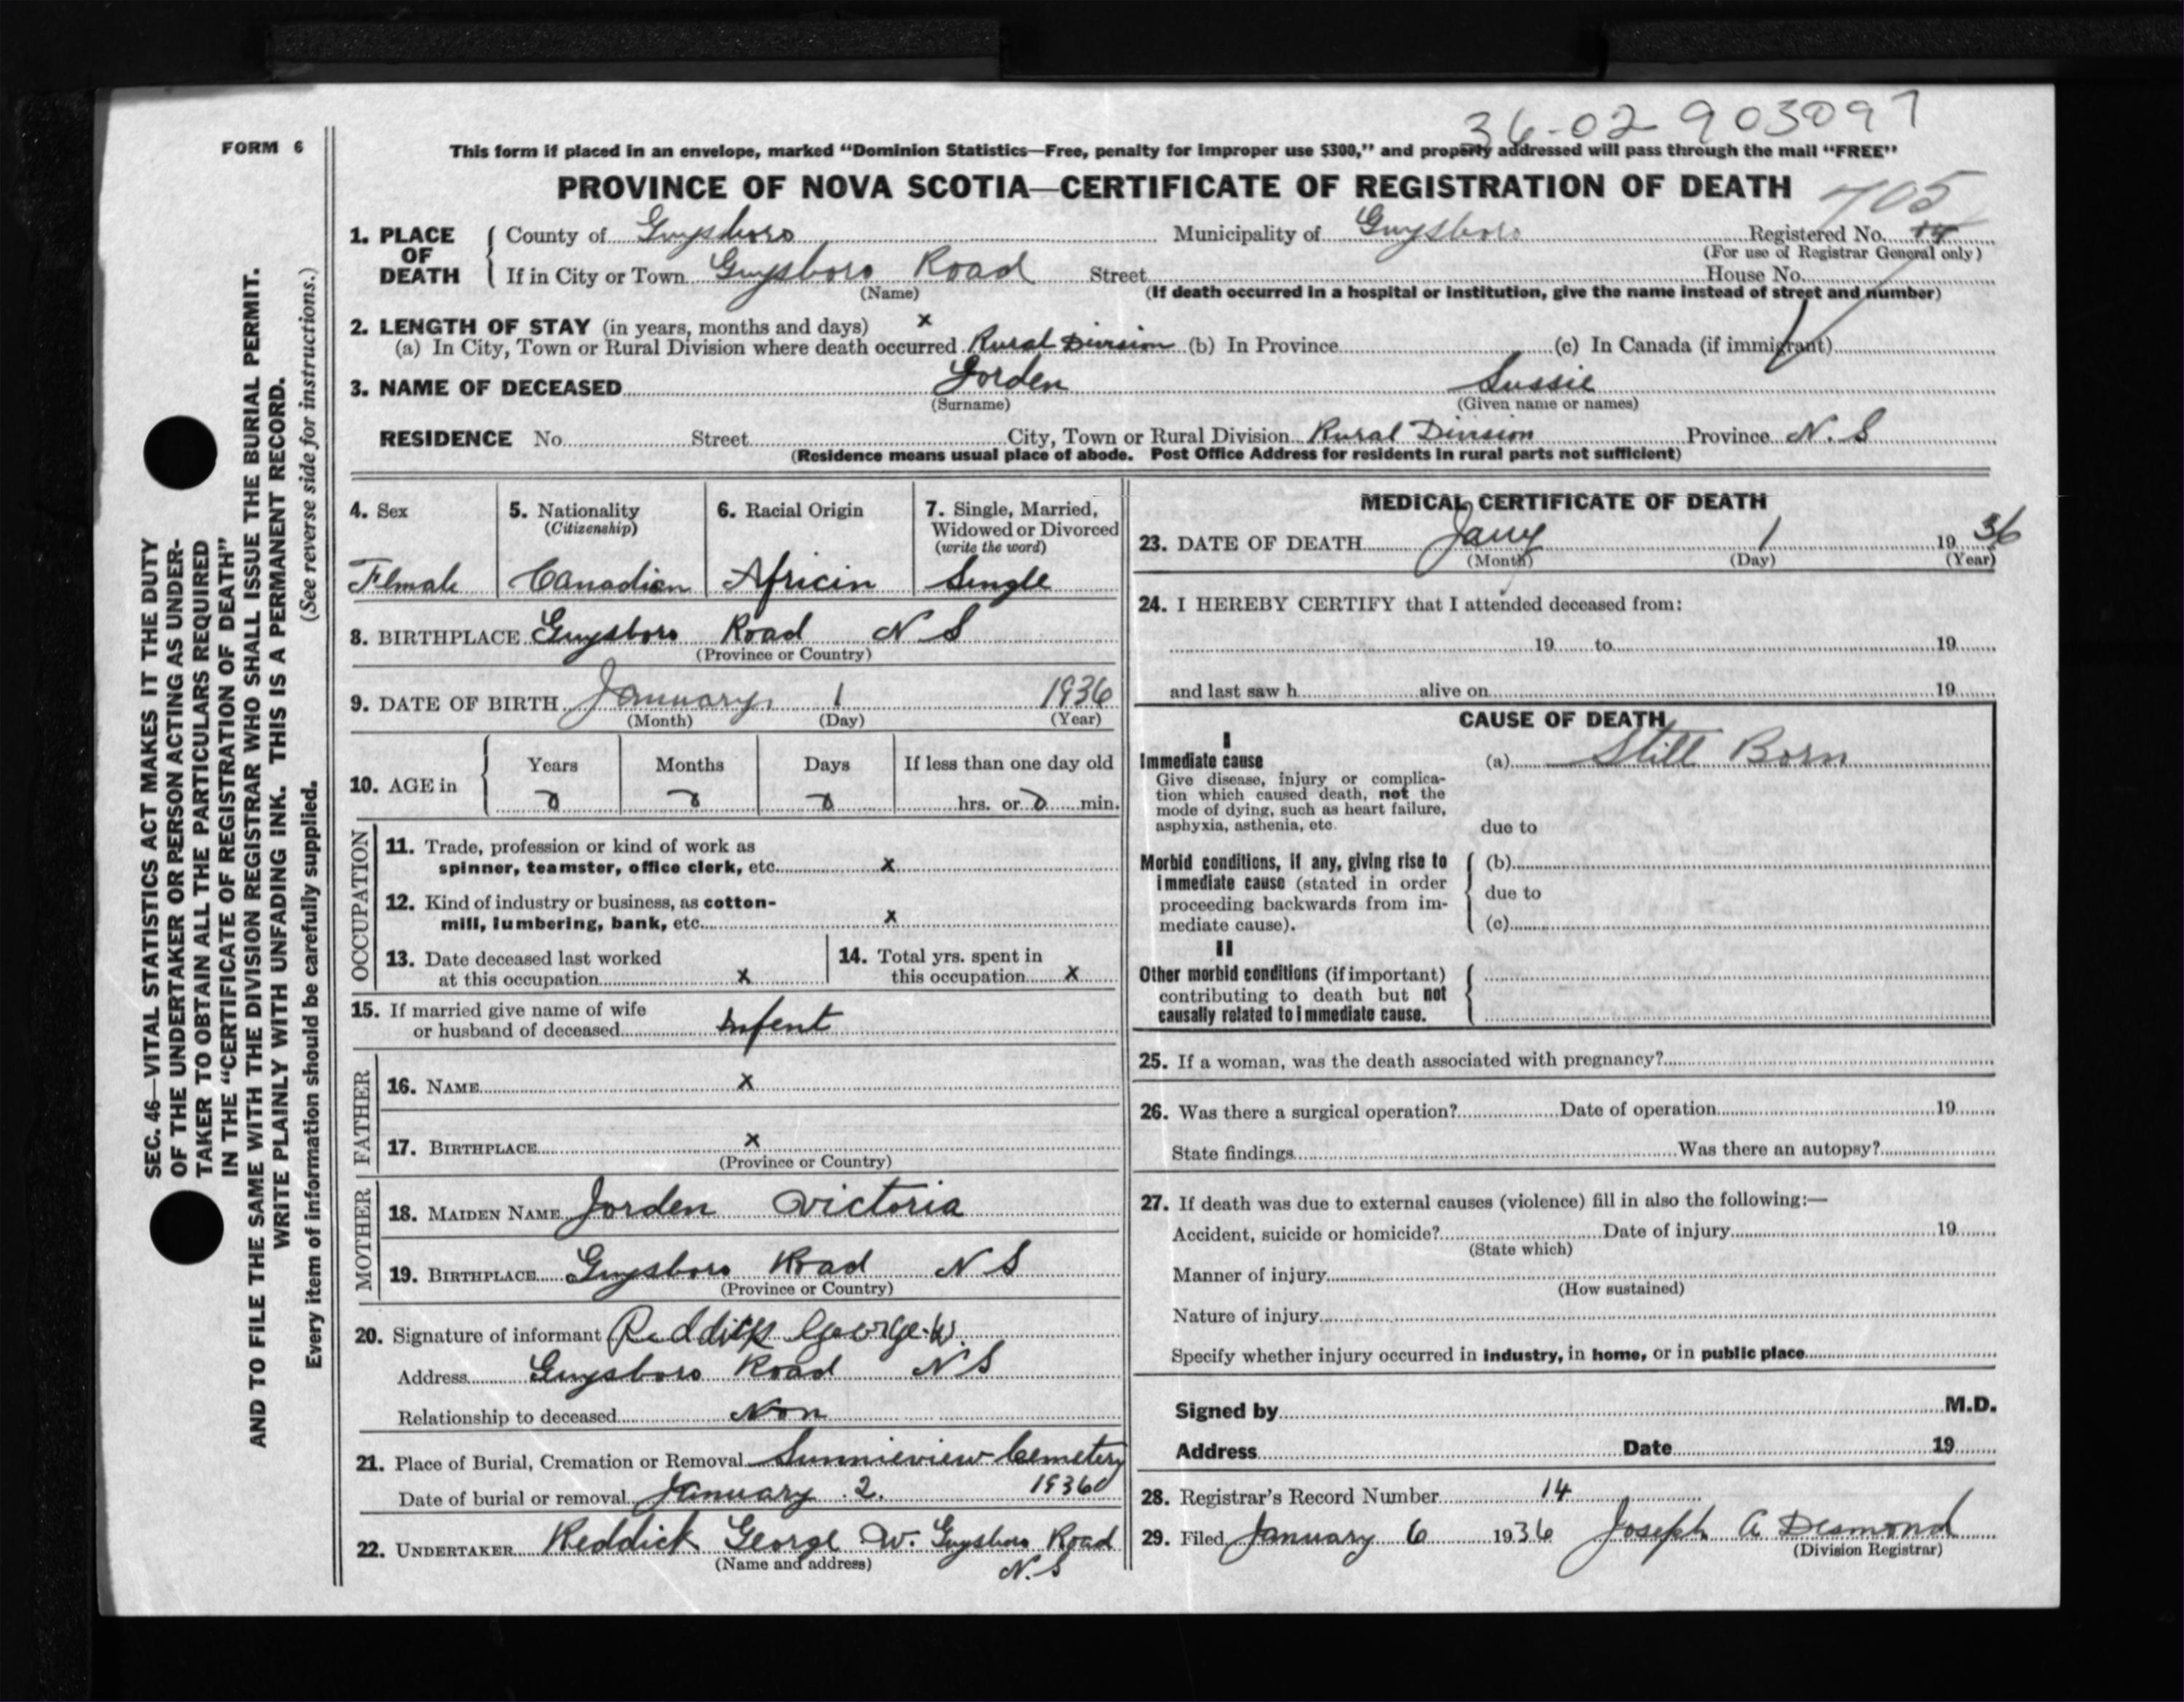 36-02-903097
FORM 6
This form if placed in an envelope, marked "Dominion Statistics—Free, penalty for improper use $300," and property addressed will pass through the mail "FREE"
PROVINCE OF NOVA SCOTIA—CERTIFICATE OF REGISTRATION OF DEATH
705
1. PLACE OF DEATH { County of Guysboro Municipality of Guysboro Registered No. 14
(For use of Registrar General only)
If in City or Town Guysboro Road Street House No.
(Name) (If death occurred in a hospital or institution, give the name instead of street and number)
2. LENGTH OF STAY (in years, months and days) x
(a) In City, Town or Rural Division where death occurred Rural Division (b) In Province (c) In Canada (if immigrant)
3. NAME OF DECEASED Jorden Sussie
(Surname) (Given name or names)
RESIDENCE No. Street City, Town or Rural Division Rural Division Province N. S
(Residence means usual place of abode. Post Office Address for residents in rural parts not sufficient)
4. Sex 5. Nationality 6. Racial Origin 7. Single, Married,
(Citizenship) Widowed or Divorced
(write the word)
Female Canadian Africin Single
8. BIRTHPLACE Guysboro Road N S
(Province or Country)
9. DATE OF BIRTH January 1 1936
(Month) (Day) (Year)
10. AGE in { Years Months Days If less than one day old
0 0 0 hrs. or 0 min.
OCCUPATION
11. Trade, profession or kind of work as
spinner, teamster, office clerk, etc. x
12. Kind of industry or business, as cotton-
mill, lumbering, bank, etc. x
13. Date deceased last worked 14. Total yrs. spent in
at this occupation x this occupation x
15. If married give name of wife
or husband of deceased Infent
FATHER
16. NAME x
17. BIRTHPLACE x
(Province or Country)
MOTHER
18. MAIDEN NAME Jorden Victoria
19. BIRTHPLACE Guysboro Road N S
(Province or Country)
20. Signature of informant Reddick George. W.
Address Guysboro Road N S
Relationship to deceased Non
21. Place of Burial, Cremation or Removal Sunnieview Cemetery
Date of burial or removal January 2. 1936
22. UNDERTAKER Reddick George W. Guysboro Road
(Name and address) N. S
MEDICAL CERTIFICATE OF DEATH
23. DATE OF DEATH Jany 1 19 36
(Month) (Day) (Year)
24. I HEREBY CERTIFY that I attended deceased from:
19 to 19
and last saw h alive on 19
CAUSE OF DEATH
I
Immediate cause (a) Still Born
Give disease, injury or complica-
tion which caused death, not the
mode of dying, such as heart failure,
asphyxia, asthenia, etc. due to
Morbid conditions, if any, giving rise to { (b)
immediate cause (stated in order due to
proceeding backwards from im-
mediate cause). (c)
II
Other morbid conditions (if important)
contributing to death but not
causally related to immediate cause.
25. If a woman, was the death associated with pregnancy?
26. Was there a surgical operation? Date of operation 19
State findings Was there an autopsy?
27. If death was due to external causes (violence) fill in also the following:—
Accident, suicide or homicide? Date of injury 19
(State which)
Manner of injury
(How sustained)
Nature of injury
Specify whether injury occurred in industry, in home, or in public place
Signed by M.D.
Address Date 19
28. Registrar's Record Number 14
29. Filed January 6 1936 Joseph A Desmond
(Division Registrar)
SEC. 46—VITAL STATISTICS ACT MAKES IT THE DUTY
OF THE UNDERTAKER OR PERSON ACTING AS UNDER-
TAKER TO OBTAIN ALL THE PARTICULARS REQUIRED
IN THE "CERTIFICATE OF REGISTRATION OF DEATH"
AND TO FILE THE SAME WITH THE DIVISION REGISTRAR WHO SHALL ISSUE THE BURIAL PERMIT.
WRITE PLAINLY WITH UNFADING INK. THIS IS A PERMANENT RECORD.
Every item of information should be carefully supplied. (See reverse side for instructions.)